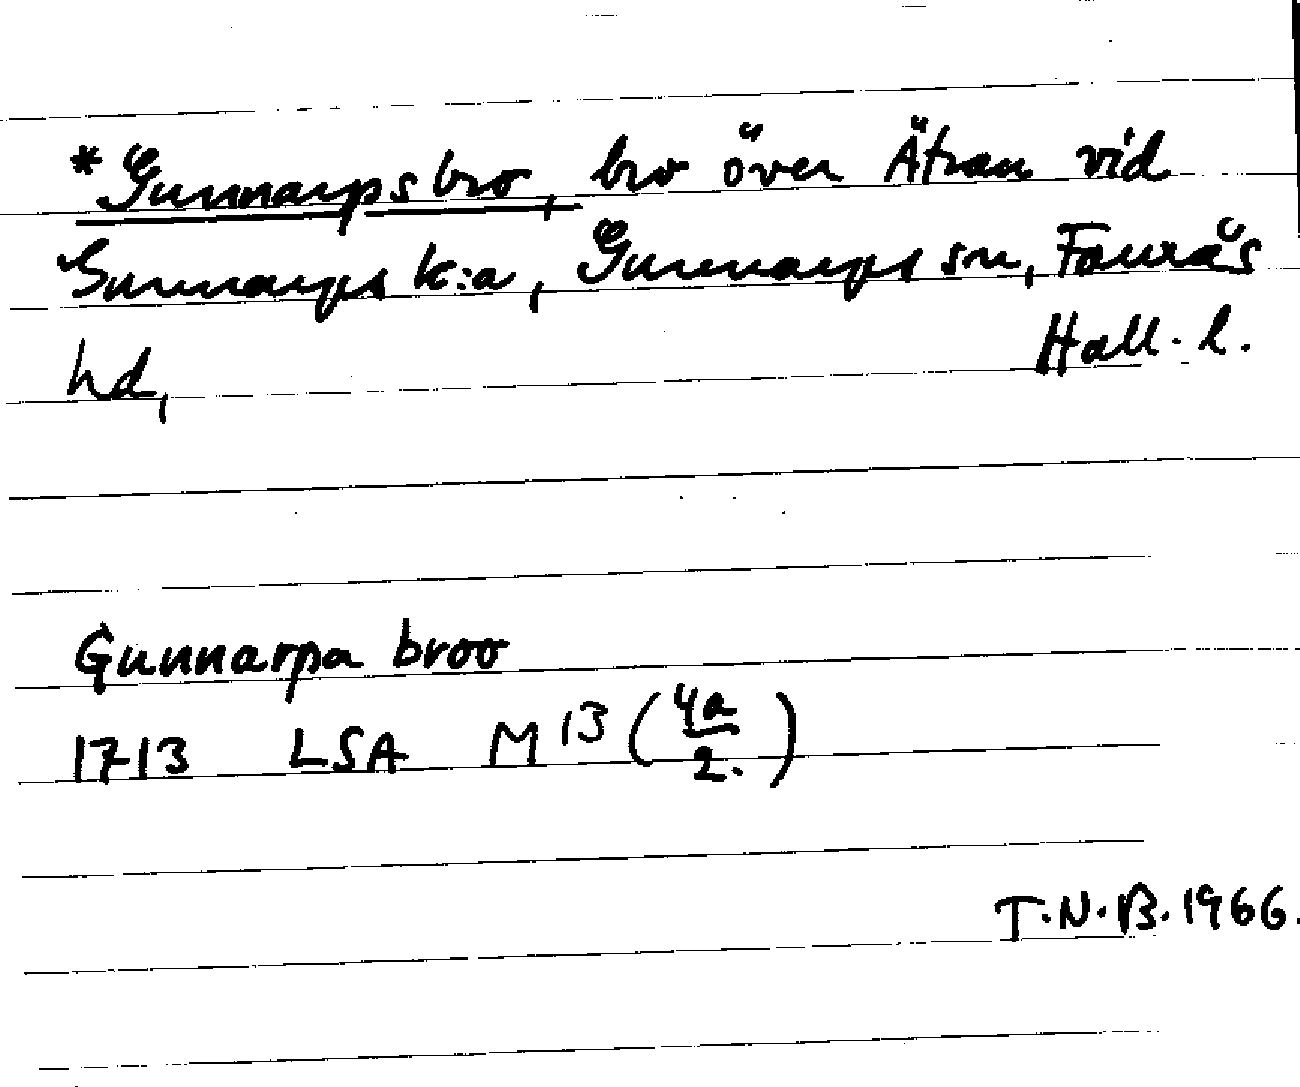 *Gunnarpsbro, bro över Ätran vid
Gunnarps k:a, Gunnarps sn, Faurås
hd, Hall. l.
Gunnarpa broo
1713 LSA M 13 (4a/2.)
T.N.B. 1966.